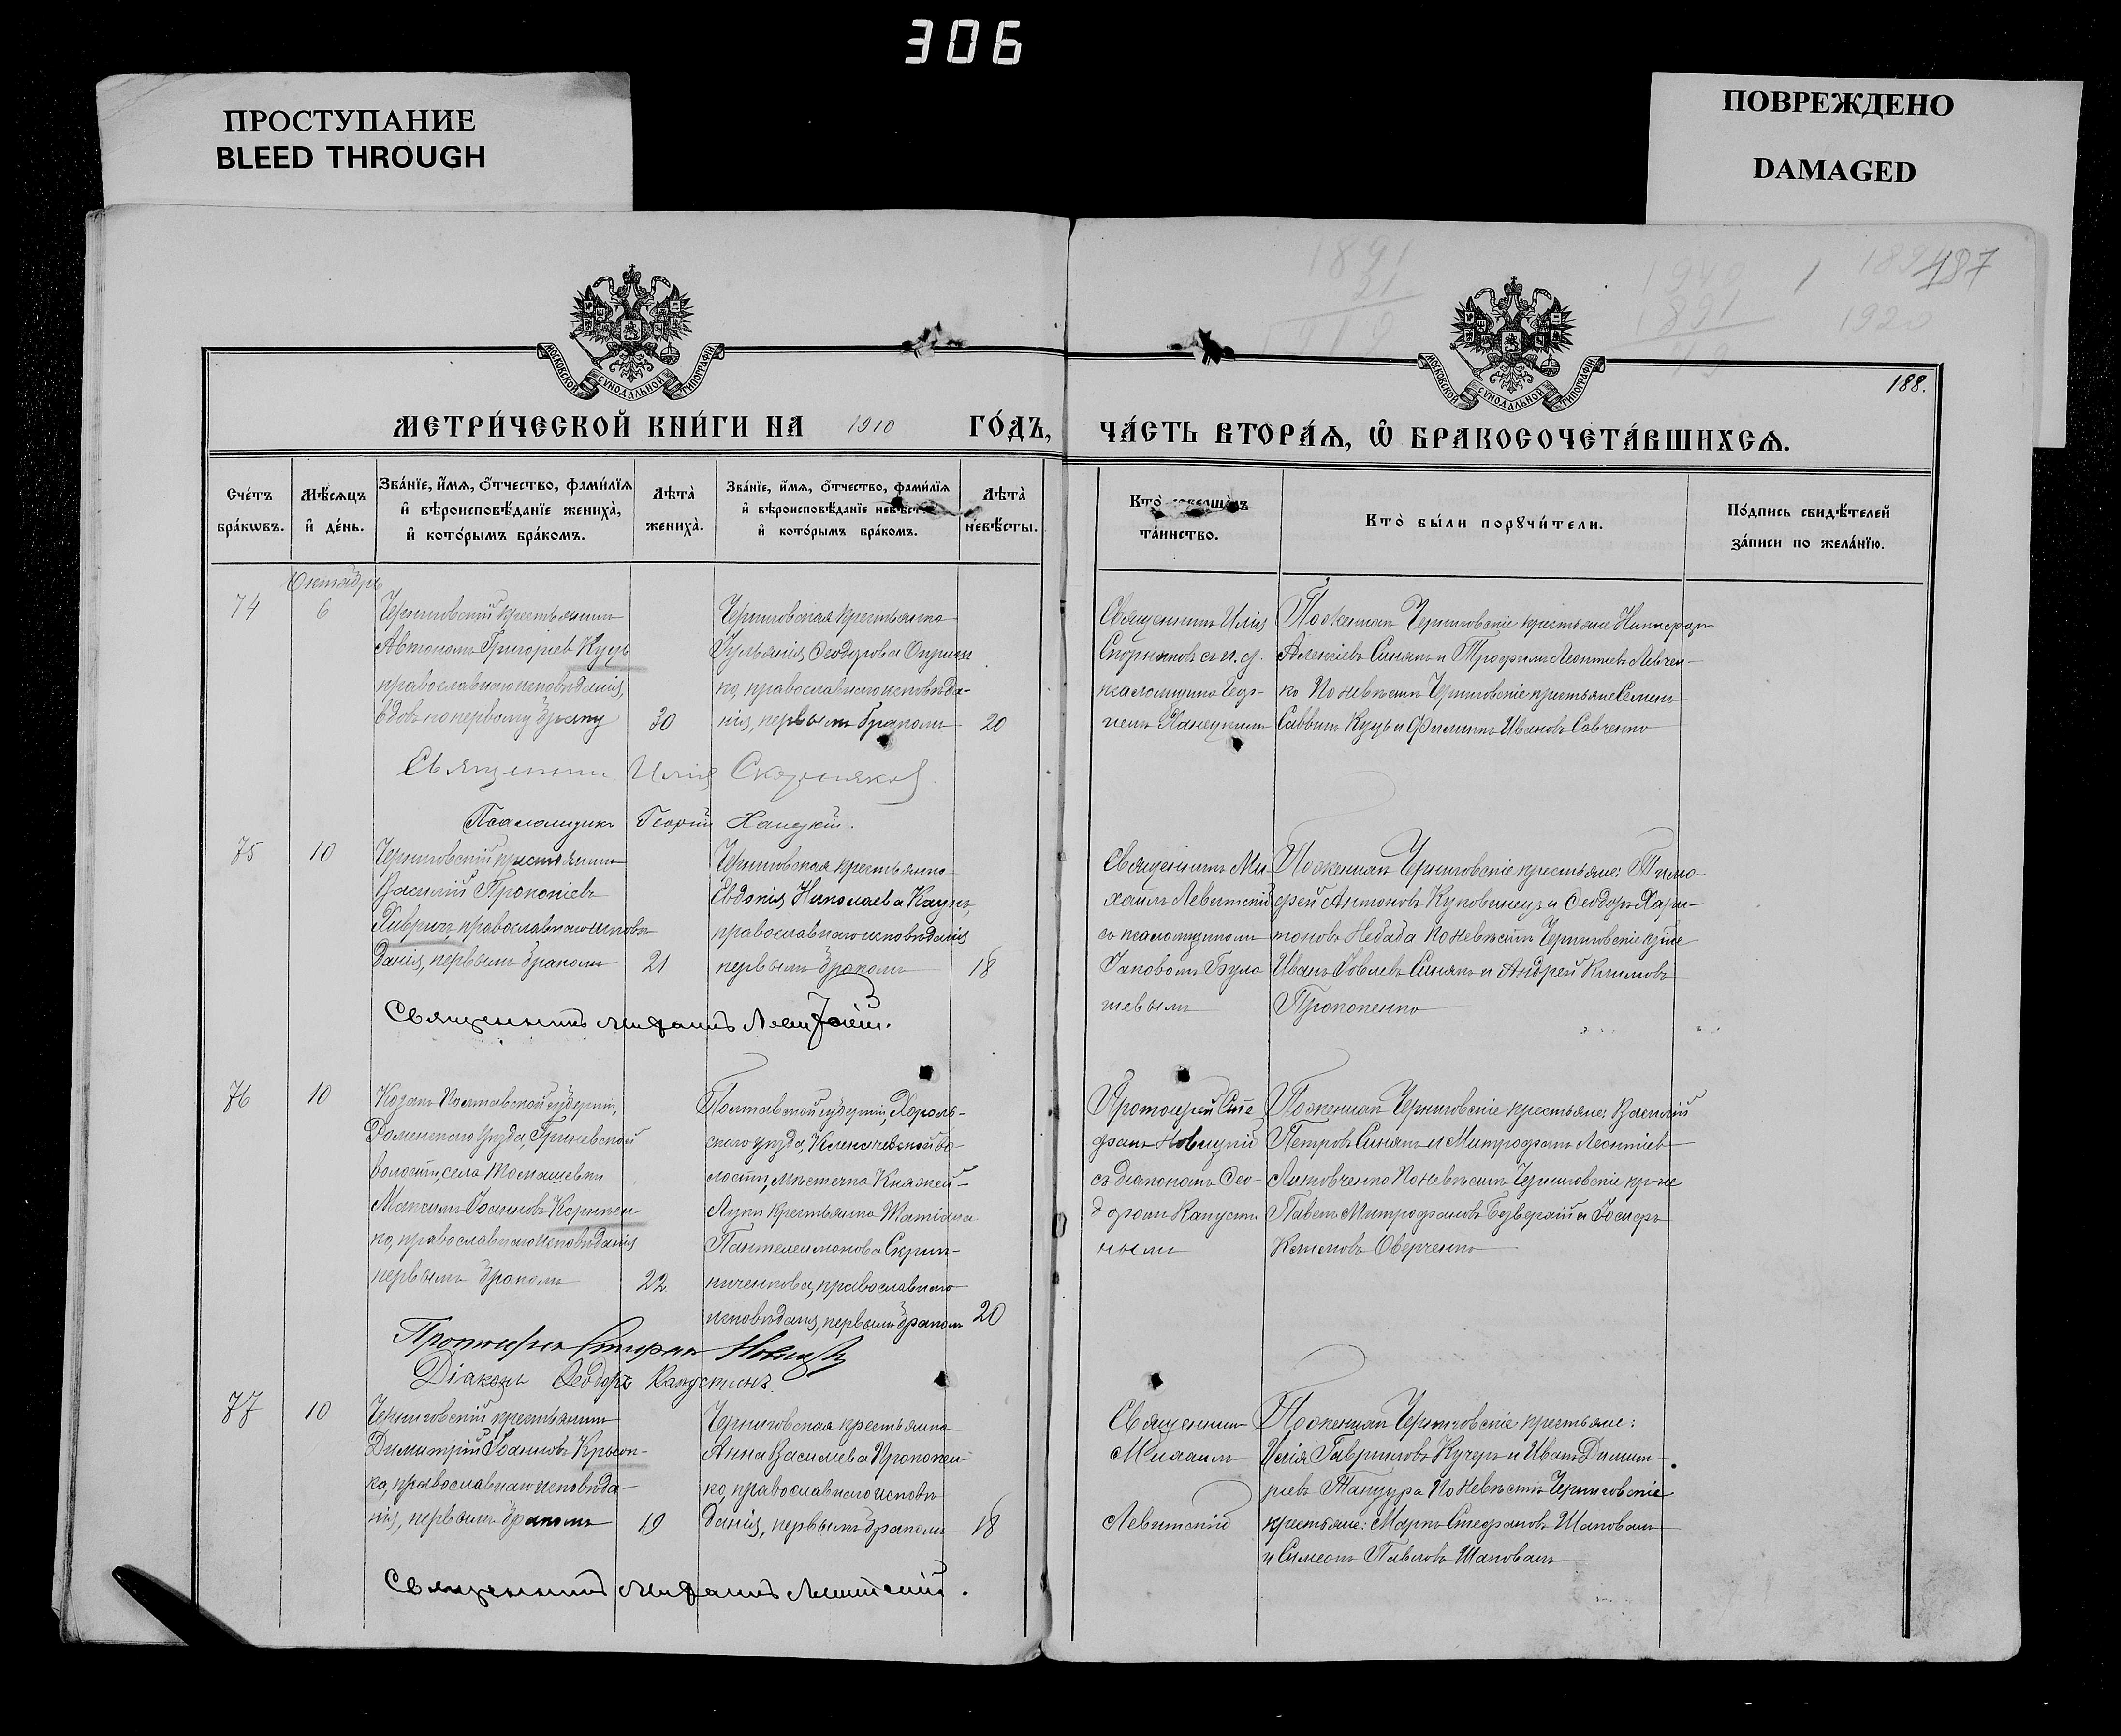 306
ПРОСТУПАНИЕ
BLEED THROUGH
ПОВРЕЖДЕНО
DAMAGED
487
188.
МОСКОВСКОЙ СѴНОДАЛЬНОЙ ТИПОГРАФІИ
МОСКОВСКОЙ СѴНОДАЛЬНОЙ ТИПОГРАФІИ
МЕТРИ́ЧЕСКОЙ КНИ́ГИ НА 1910 ГО́ДЪ,
ЧА́СТЬ ВТОРА́Ѧ, Ѽ БРАКОСОЧЕТА́ВШИХСѦ.
Сче́тъ бра́кѡвъ.
Мѣ́сяцъ и҆ де́нь.
Зва́нїе, и҆́мя, ѻ҆́тчество, фами́лїя и҆ вѣроисповѣ́данїе жениха̀, и҆ кото́рымъ бра́комъ.
Лѣта̀ жениха̀.
Зва́нїе, и҆́мя, ѻ҆́тчество, фами́лїя и҆ вѣроисповѣ́данїе невѣ́сты и҆ кото́рымъ бра́комъ.
Лѣта̀ невѣ́сты.
Кто̀ соверша́лъ та́инство.
Кто̀ бы́ли порꙋчи́тели.
По́дпись свидѣ́телей за́писи по жела́нїю.
Октябрь
74
6
Черниговскій крестьянинъ
Автономъ Григоріевъ Куцъ
православнаго исповѣданія,
вдовъ по первому браку
30
Черниговская крестьянка
Ѳеодорова
ко, православнаго исповѣда-
нія, первымъ бракомъ
20
Священникъ Илія
Скорняковъ съ и. д.
псаломщика Геор-
гіемъ Ханецкимъ
По женихѣ Черниговскіе крестьяне Никифоръ
Алексіевъ Синякъ и Трофимъ Леонтіевъ Левчен-
ко По невѣстѣ Черниговскіе крестьяне Семенъ
Саввинъ Куцъ и Филиппъ Ивановъ Савченко
Священникъ Илія Скорняковъ
Псаломщикъ Георгій Ханецкій.
75
10
Черниговскій крестьянинъ
Василій Прокопіевъ
православнаго исповѣ-
данія, первымъ бракомъ
21
Черниговская крестьянка
Евдокія Николаева
православнаго исповѣданія
первымъ бракомъ
18
Священникъ Ми-
хаилъ Левитскій
съ псаломщикомъ
Іаковомъ Була-
шевымъ
По женихѣ Черниговскіе крестьяне: Тимо-
фей Антоновъ Куковинецъ и Ѳеодоръ Хари-
тоновъ Недада По невѣстѣ Черниговскіе кр-не
Иванъ Іовлевъ Синякъ и Андрей Климовъ
Прокопенко
Священникъ Михаилъ Левитскій.
76
10
Козакъ Полтавской губерніи,
Роменскаго уѣзда, Гриневской
волости, села Томашевки
Максимъ Іоанновъ Корнѣен-
ко, православнаго исповѣданія
первымъ бракомъ
22
Полтавской губерніи, Хороль-
скаго уѣзда, во-
лости, мѣстечка Княжей-
Луки крестьянка Татіана
Пантелеимонова Скрип-
ниченкова, православнаго
исповѣданія, первымъ бракомъ
20
Протоіерей Сте-
фанъ Новицкій
съ діакономъ Ѳео-
доромъ Капусти-
нымъ
По женихѣ Черниговскіе крестьяне: Василій
Петровъ Синякъ и Митрофанъ Леонтіевъ
Литовченко По невѣстѣ Черниговскіе кр-не
Павелъ Митрофановъ и Іосифъ
Оверченко
Протоіерей Стефанъ Новицкій
Діаконъ Ѳеодоръ Капустинъ.
77
10
Черниговскій крестьянинъ
Димитрій Іоанновъ
ко, православнаго исповѣда-
нія, первымъ бракомъ
19
Черниговская крестьянка
Анна Василіева Прокопен-
ко, православнаго исповѣ-
данія, первымъ бракомъ
18
Священникъ
Михаилъ
Левитскій
По женихѣ Черниговскіе крестьяне:
Илія Гавриловъ Кучеръ и Иванъ Димит-
ріевъ Танцура По невѣстѣ Черниговскіе
крестьяне: Маркъ Стефановъ Шаповалъ
и Симеонъ Павловъ Шаповалъ
Священникъ Михаилъ Левитскій.